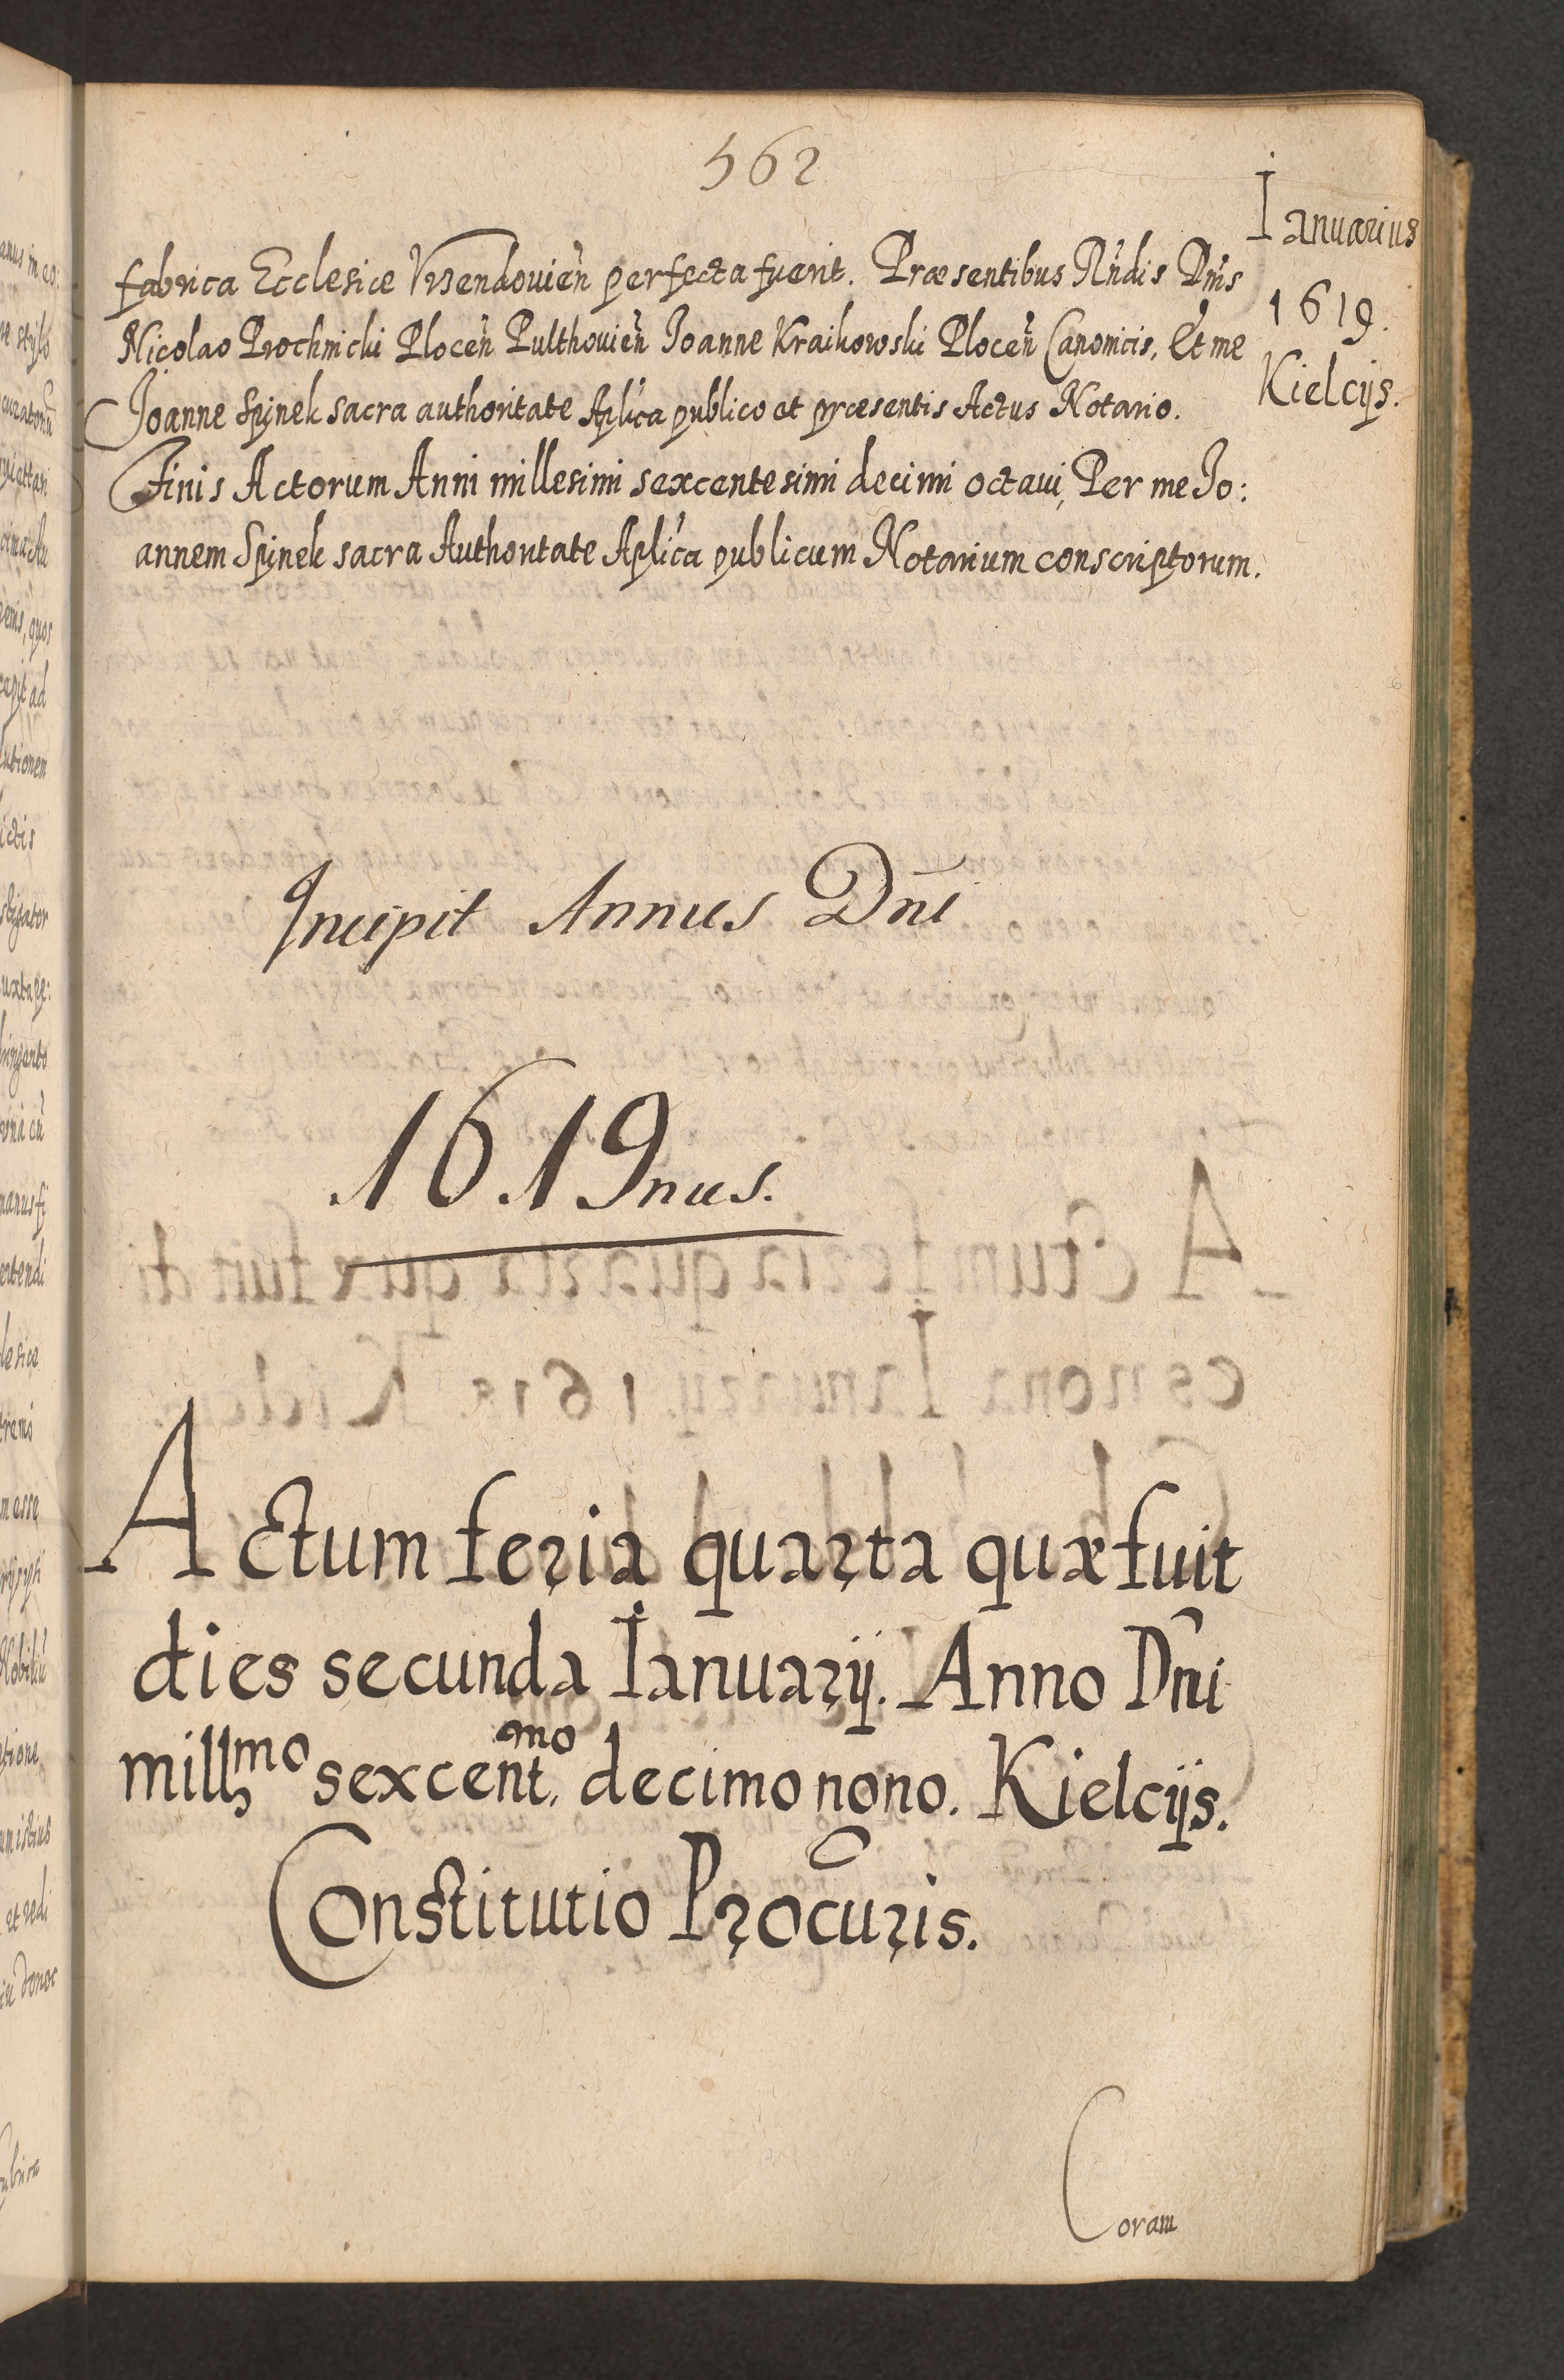 562
Ianuarius
1619.
Kielcijs.
fabrica Ecclesiæ Vrzendouien̄ perfecta fuerit. Præsentibus Rn̄dis Dn̄is
Nicolao Prochnicki Plocen̄ Pulthouien̄ Joanne Kraikowski Plocen̄ Canonicis, Et me
Joanne Spinek sacra authoritate Aplica publico et præsentis Actus Notario.
Finis Actorum Anni millesimi sexcentesimi decimi octaui, Per me Jo:
annem Spinek sacra Authoritate Aplica publicum Notarium conscriptorum.
Incipit Annus Dn̄i
1619nus.
Actum feria quarta quæ fuit
dies secunda Ianuarij. Anno Dn̄i
mill^mo sexcent^mo. decimo nono. Kielcijs.
Constitutio Procuris.
Coram